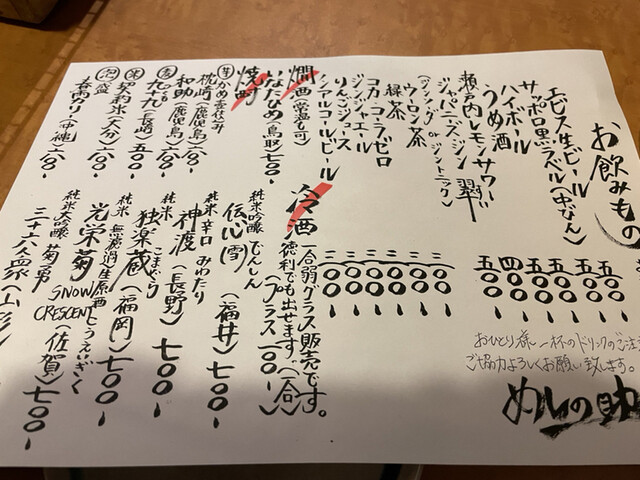 お飲みもの
エビス生ビール 五〇〇
サッポロ黒ラベル(中びん)
ハイボール
うめ酒
瀬戸内レモンサワー
ジャパニーズジン 翠
(ジンソーダ or ジントニック)
ウーロン茶 三〇〇
緑茶 三〇〇
コカ・コーラゼロ 三〇〇
ジンジャエール 三〇〇
りんごジュース 三〇〇
ノンアルコールビール
おひとり様 一杯のドリンクのご注
ご協力よろしくお願い致します。
めしの助
燗酒(常温も可)
いなたひめ(鳥取)七〇〇
焼酎
枕崎(鹿児島)
和助(鹿児島)
九十九(長崎)五〇〇
泡盛
冷酒
一合弱グラス販売です。
徳利でも出せます。(一合)
(プラス一〇〇)
純米吟醸 でんしん
伝心 雪(福井)七〇〇
純米 辛口 みわたり
神渡(長野)七〇〇
純米 こまぐら
独楽蔵(福岡)七〇〇
純米 無濾過生原酒 こうえいぎく
光栄菊 SNOW CRESCENT(佐賀)七〇〇
純米大吟醸 菊勇
三十六人衆(山形)七〇〇